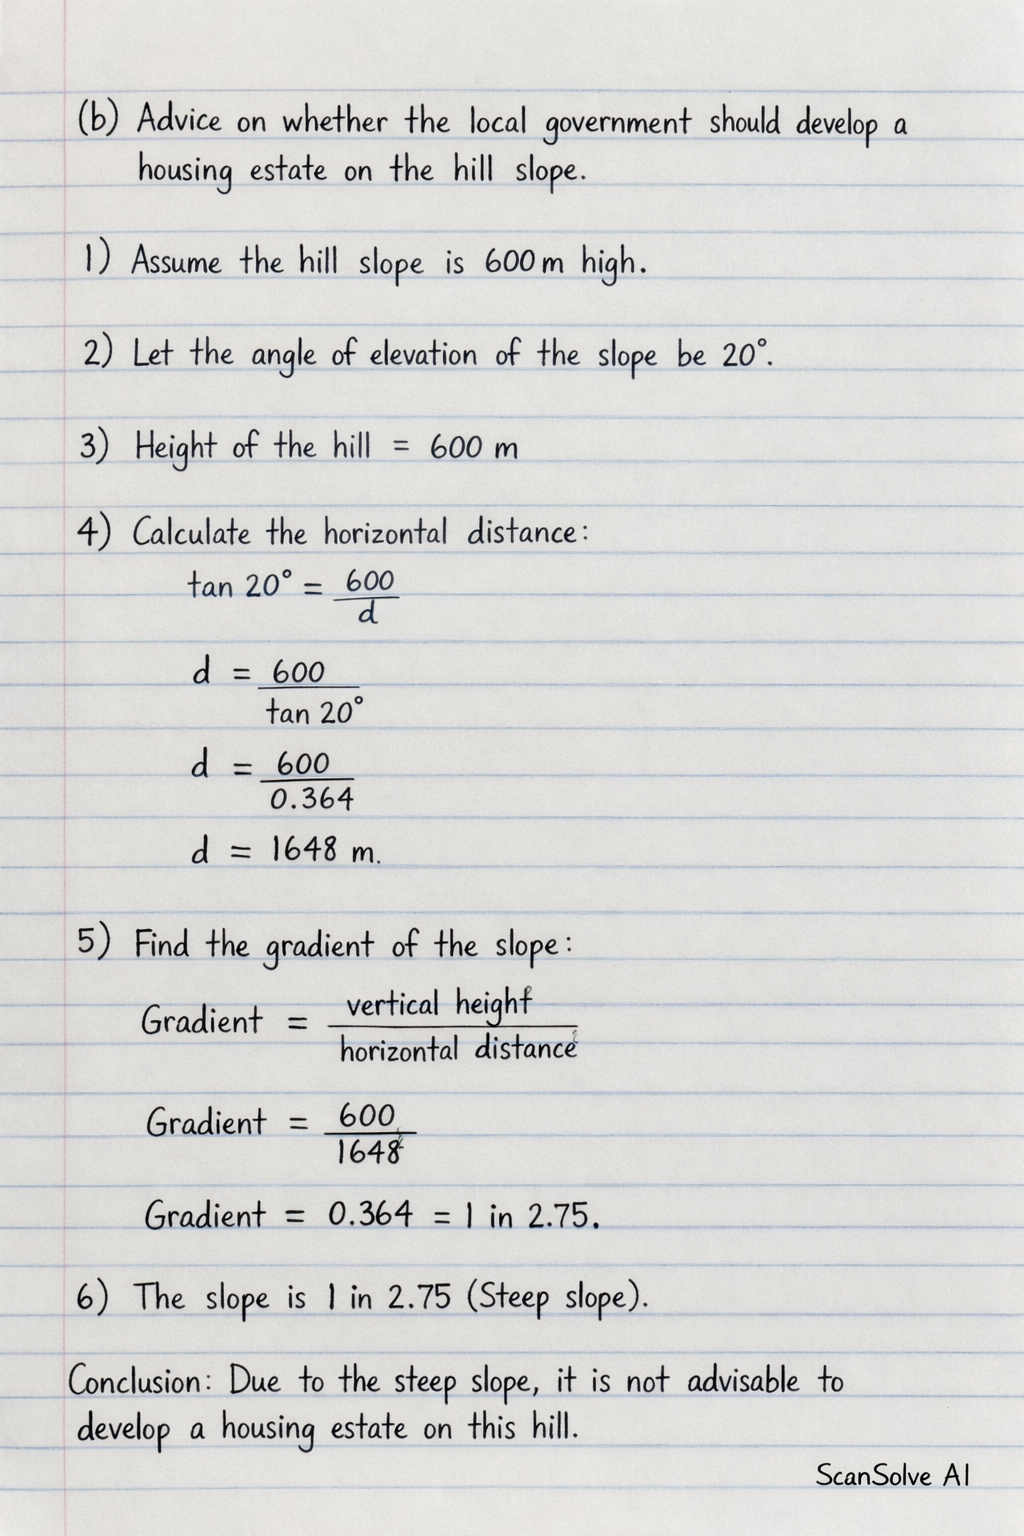 (b) Advice on whether the local government should develop a
housing estate on the hill slope.
1) Assume the hill slope is 600 m high.
2) Let the angle of elevation of the slope be 20°.
3) Height of the hill = 600 m
4) Calculate the horizontal distance:
tan 20° = 600
d
d = 600
tan 20°
d = 600
0.364
d = 1648 m.
5) Find the gradient of the slope:
Gradient = vertical height
horizontal distance
Gradient = 600
1648
Gradient = 0.364 = 1 in 2.75.
6) The slope is 1 in 2.75 (Steep slope).
Conclusion: Due to the steep slope, it is not advisable to
develop a housing estate on this hill.
ScanSolve AI